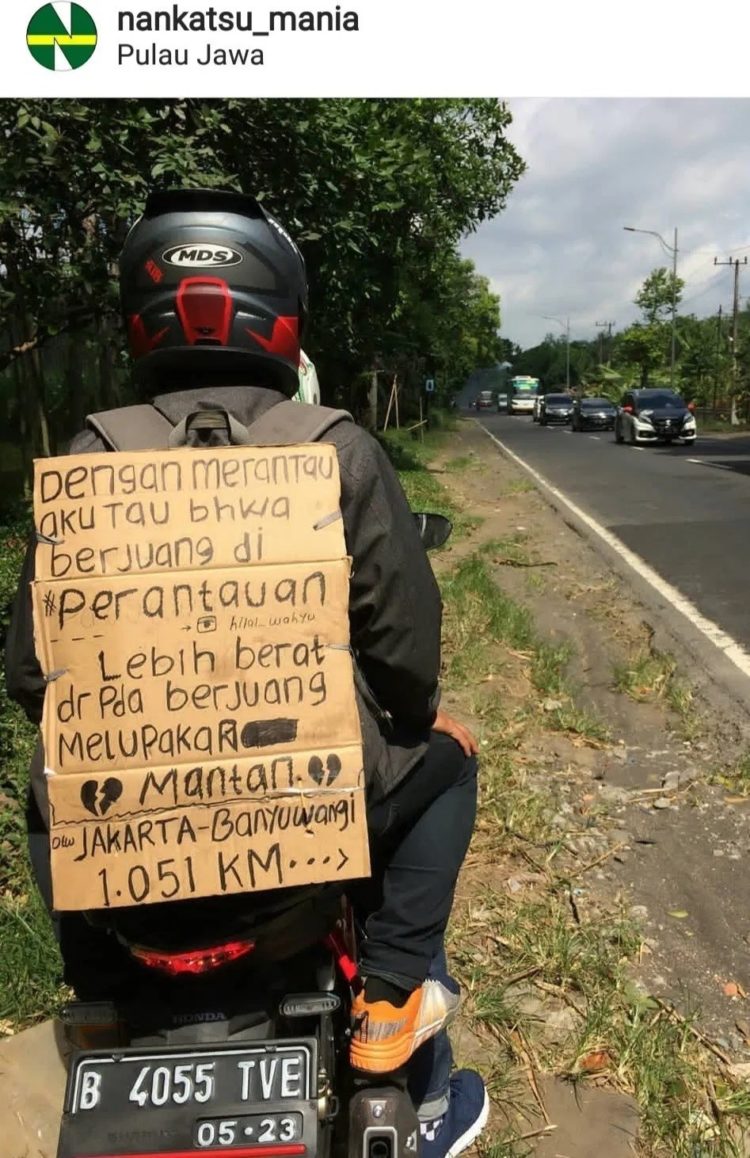 nankatsu_mania
Pulau Jawa
MDS
Dengan merantau
aku tau bhwa
berjuang di
#perantauan
hilal_wahyu
Lebih berat
dr Pda berjuang
MeLUPakaN
Mantan.
otw JAKARTA-Banyuwangi
1.051 KM...>
HONDA
B 4055 TVE
05·23